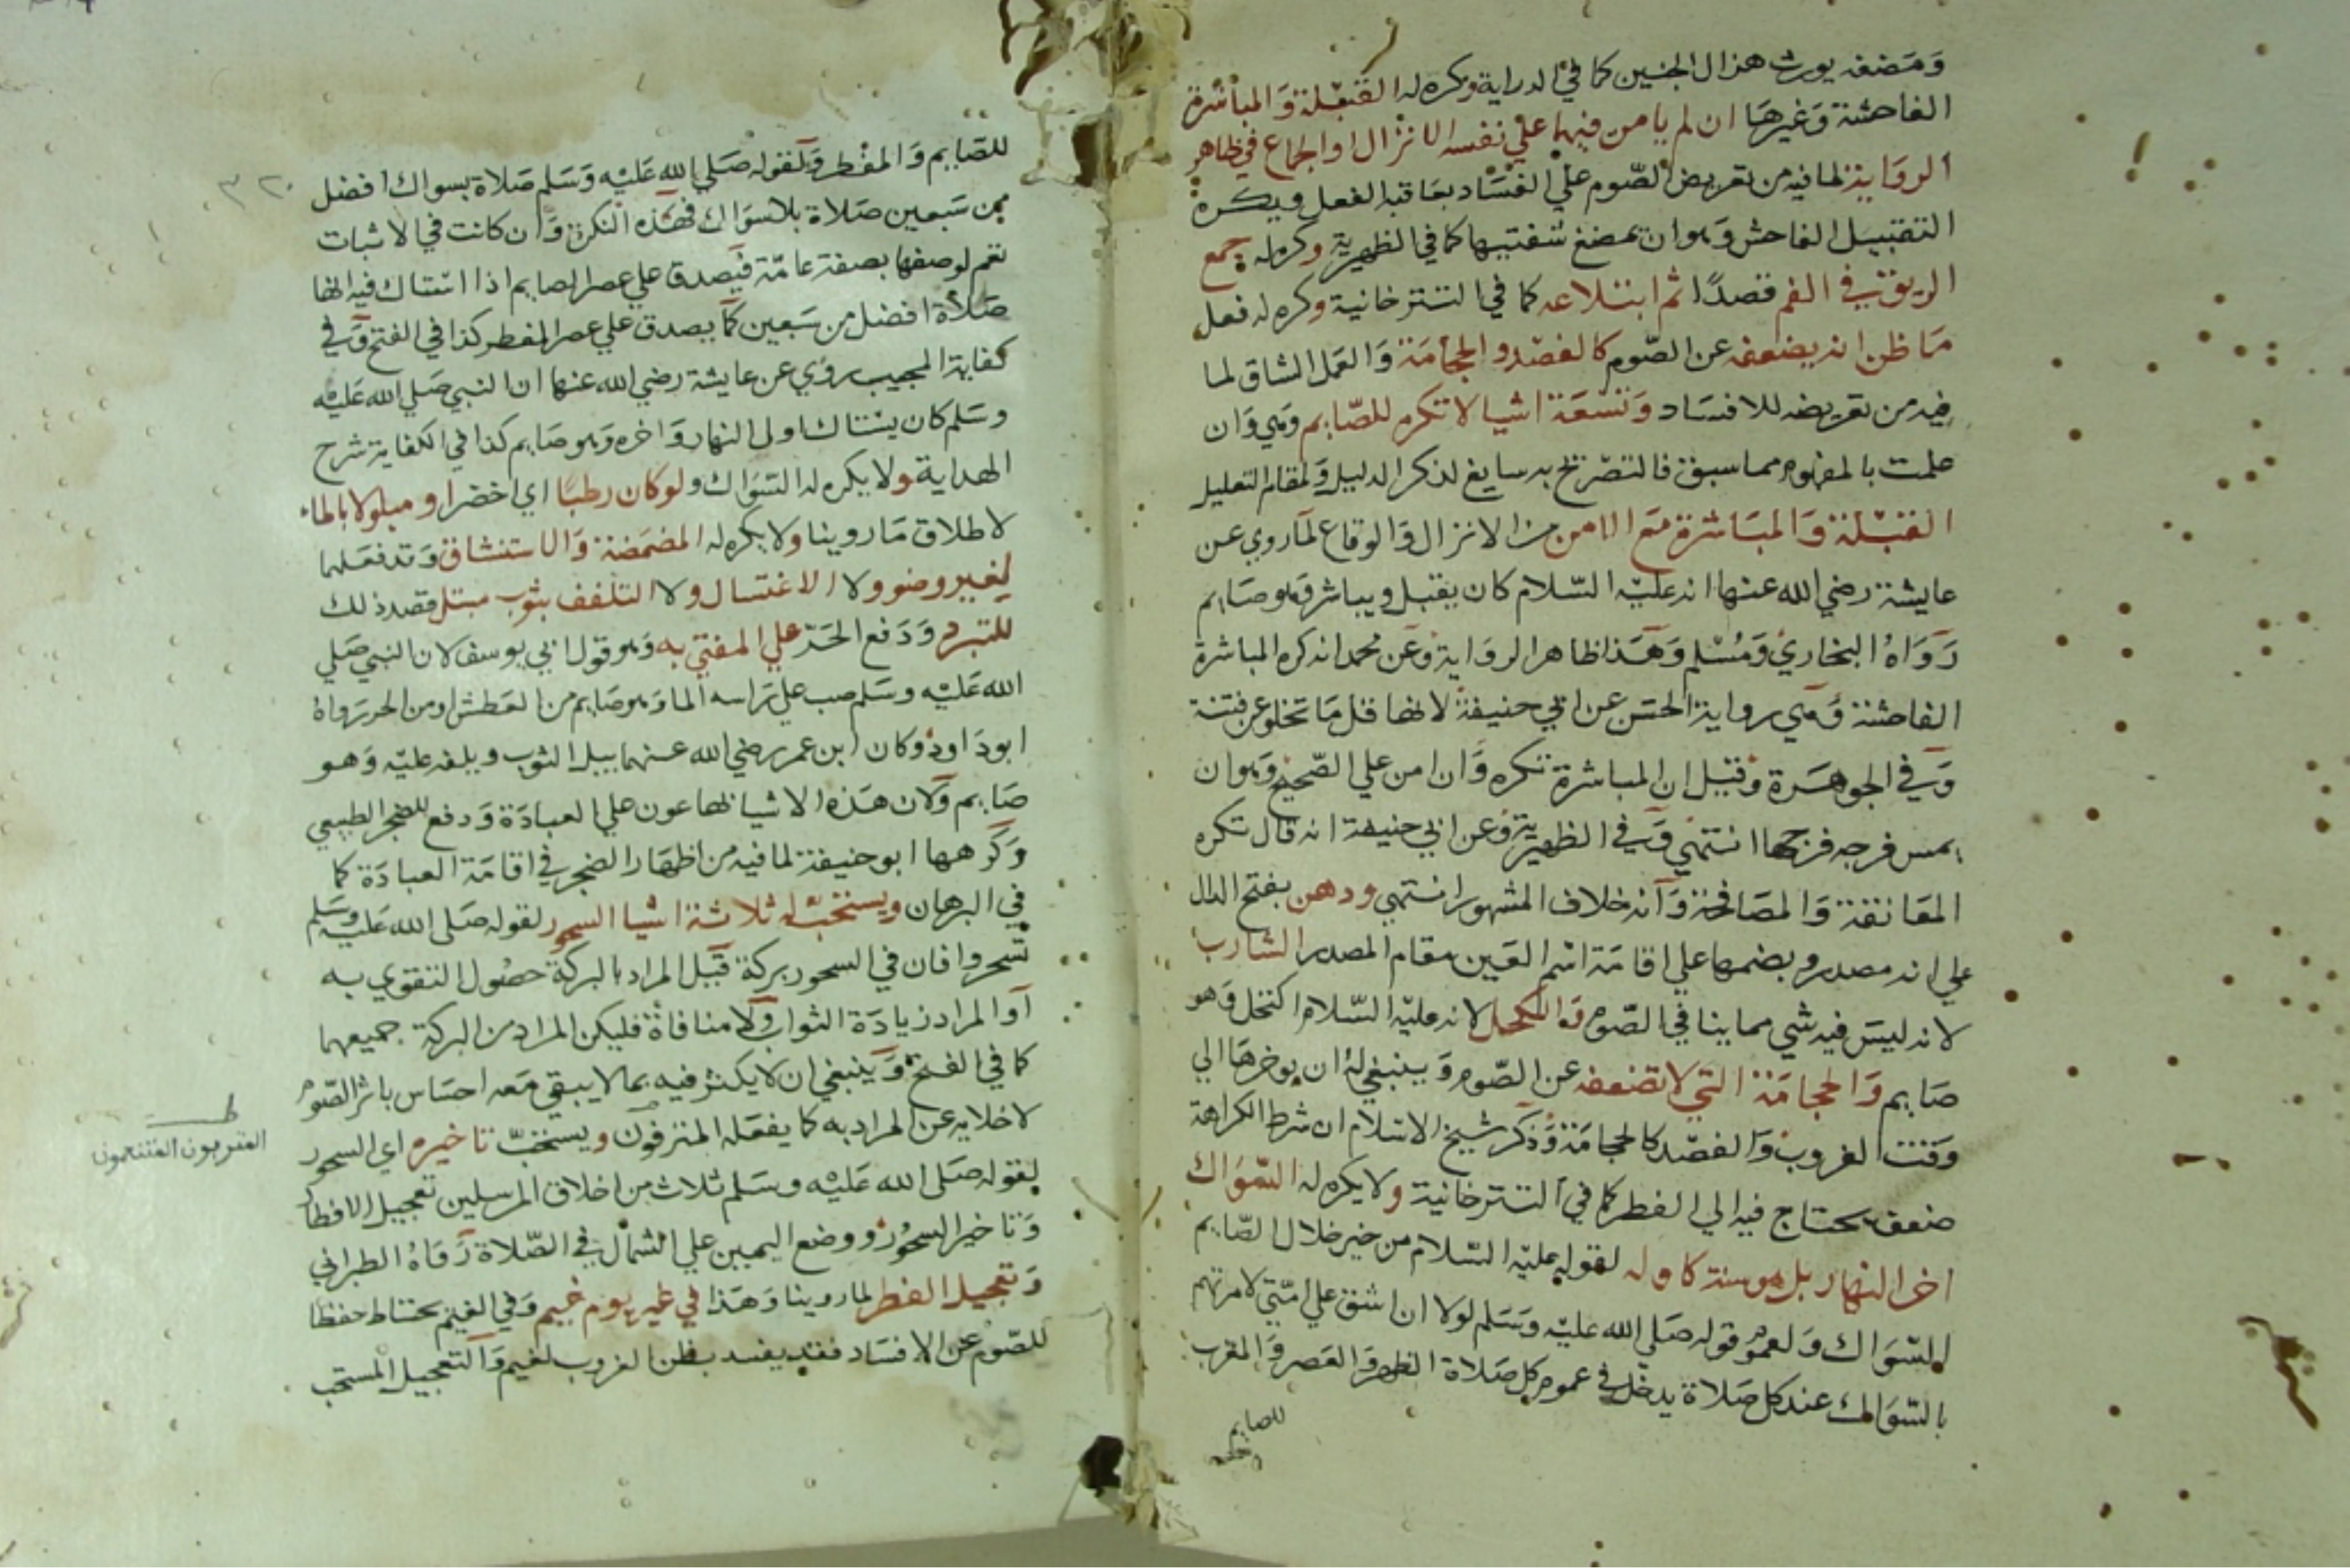 ومضغه يورث هزال الجنبين كما في الدراية وكره له القبلة والمباشرة
الفاحشة وغيرها ان لم يامن فيهما على نفسه الانزال او الجماع في ظاهر
الرواية لما فيه من تعريض الصوم على الفساد بعاقبة الفعل ويكره
التقبيل الفاحش وهو ان يمضغ شفتيها كما في الظهيرية وكره له جمع
الريق في الفم قصدا ثم ابتلاعه كما في التترخانية وكره له فعل
ما ظن انه يضعفه عن الصوم كالفصد والحجامة والعمل الشاق لما
فيه من تعريضه للافساد وتسعة اشيا لا تكره للصايم وهي وان
علمت بالمفهوم مما سبق فالتصريح به سايغ لذكر الدليل ولمقام التعليل
القبلة والمباشرة مع الامن من الانزال والوقاع لما روي عن
عايشة رضي الله عنها انه عليه السلام كان يقبل ويباشر وهو صايم
رواه البخاري ومسلم وهذا ظاهر الرواية وعن محمد انه كره المباشرة
الفاحشة وهي رواية الحسن عن ابي حنيفة لانها قل ما تخلو عن فتنة
وفي الجوهرة وقيل ان المباشرة تكره وان امن على الصحيح وهو ان
يمس فرجه فرجها انتهى وفي الظهيرية وعن ابي حنيفة انه قال تكره
المعانقة والمصافحة وانه خلاف المشهور انتهى ودهن بفتح الدال
على انه مصدر وبضمها على اقامة اسم العين مقام المصدر الشارب
لانه ليس فيه شي مما ينافي الصوم والكحل لانه عليه السلام اكتحل وهو
صايم والحجامة التي لا تضعفه عن الصوم وينبغي له ان يوخرها الى
وقت الغروب والفصد كالحجامة وذكر شيخ الاسلام ان شرط الكراهة
ضعف يحتاج فيه الى الفطر كما في التترخانية ولا يكره له السواك
اخر النهار بل هو سنة كاوله لقوله عليه السلام من خير خلال الصايم
السواك ولعموم قوله صلى الله عليه وسلم لولا ان اشق على امتي لامرتهم
بالسواك عند كل صلاة يدخل في عموم كل صلاة الظهر والعصر والمغرب
للصايم
للصايم والمفطر ولقوله صلي الله عليه وسلم صلاة بسواك افضل
من سبعين صلاة بلا سواك فهذه النكرة وان كانت في الاثبات
تعم لوصفها بصفة عامة فيصدق على عصر الصايم اذا استاك فيه انها
صلاة افضل من سبعين كما يصدق على عصر المفطر كذا في الفتح وفي
كفاية المجيب روي عن عايشة رضي الله عنها ان النبي صلي الله عليه
وسلم كان يستاك اول النهار واخره وهو صايم كذا في الكفاية شرح
الهداية ولا يكره له السواك ولو كان رطبا اي اخضر او مبلولا بالماء
لاطلاق ما روينا ولا يكره له المضمضة والاستنشاق وقد فعلهما
لغير وضو ولا الاغتسال ولا التلفف بثوب مبتل قصد ذلك
للتبرد ودفع الحر على المفتي به وهو قول ابي يوسف لان النبي صلي
الله عليه وسلم صب على راسه الما وهو صايم من العطش او من الحر رواه
ابو داود وكان ابن عمر رضي الله عنهما يبل الثوب ويلفه عليه وهو
صايم ولان هذه الاشيا بها عون على العبادة ودفع للضجر الطبيعي
وكرهها ابو حنيفة لما فيه من اظهار الضجر في اقامة العبادة كما
في البرهان ويستحب له ثلاثة اشيا السحور لقوله صلى الله عليه وسلم
تسحروا فان في السحور بركة قيل المراد بالبركة حصول التقوي به
او المراد زيادة الثواب ولا منافاة فليكن المراد من البركة جميعهما
كما في الفتح وينبغي ان لا يكثر فيه بما لا يبقى معه احساس باثر الصوم
لاخلايه عن المراد به كما يفعله المترفون ويستحب تاخيره اي السحور
لقوله صلى الله عليه وسلم ثلاث من اخلاق المرسلين تعجيل الافطار
وتاخير السحور ووضع اليمين على الشمال في الصلاة رواه الطبراني
وتعجيل الفطر لما روينا وهذا في غير يوم غيم وفي الغيم يحتاط حفظا
للصوم عن الافساد فقد يفسد بظن الغروب لغيم والتعجيل المستحب
المتنعمون